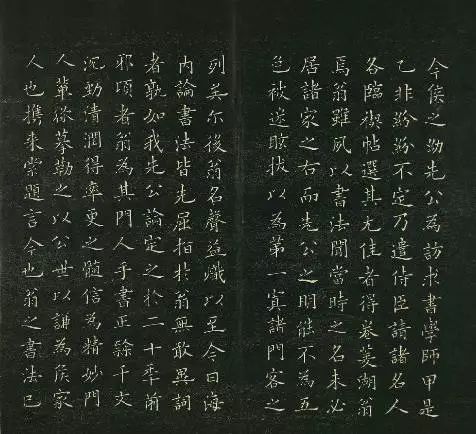 今侯之幼先公為訪求書學師甲是
乙非紛紛不定乃遣侍臣請諸名人
各臨禊帖選其尤佳者得卷菱湖翁
焉翁雖夙以書法聞當時之名未必
居諸家之右而先公之明能不為五
色被迷眩拔以為第一寘諸門客之
列矣尔後翁名聲益熾以至今日海
內論書法皆先屈指於翁無敢異詞
者孰如我先公論定之於二十年前
邪頃者翁為其門人手書正隸千文
沉勁清潤得率更之髓信為精妙門
人輩欲摹勒之以公世以謙為侯家
人也携來索題言今也翁之書法已